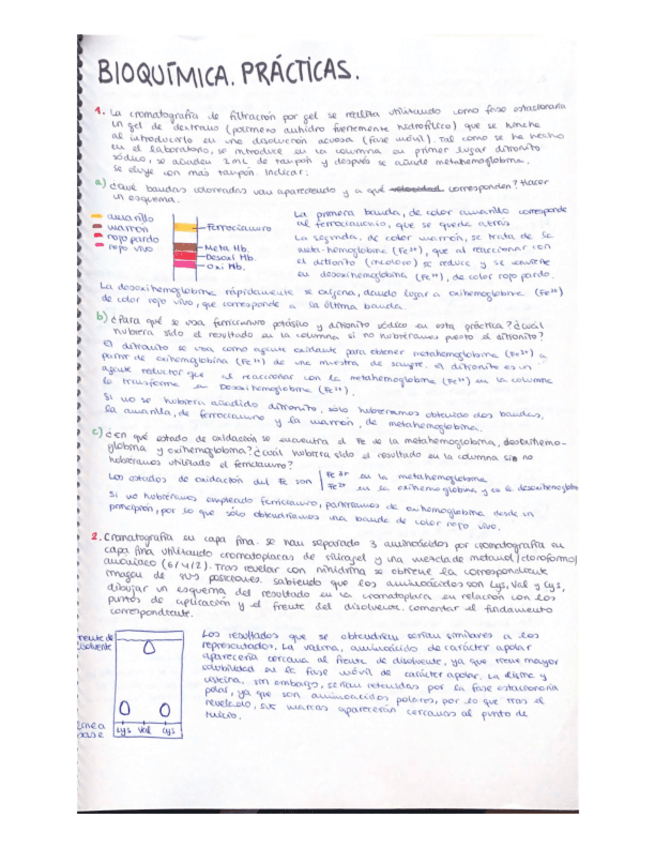 BIOQUÍMICA. PRÁCTICAS.
1. La cromatografía de filtración por gel se realiza utilizando como fase estacionaria
un gel de dextrano (polímero anhidro fuertemente hidrofílico) que se hincha
al introducirlo en una disolución acuosa (fase móvil). Tal como se ha hecho
en el laboratorio, se introduce en la columna en primer lugar ditionito
sódico, se añaden 2mL de tampón y después se añade metahemoglobina.
Se eluye con más tampón. Indicar:
a) ¿Qué bandas coloreadas van apareciendo y a qué velocidad corresponden? Hacer
un esquema.
amarillo
marrón
rojo pardo
rojo vivo
Ferrocianuro
Meta Hb.
Desoxi Hb.
Oxi Hb.
La primera banda, de color amarillo corresponde
al ferrocianuro, que se queda atrás
La segunda, de color marrón, se trata de la
meta-hemoglobina (Fe³⁺), que al reaccionar con
el ditionito (incoloro) se reduce y se convierte
en desoxihemoglobina (Fe²⁺), de color rojo pardo.
La desoxihemoglobina rápidamente se oxigena, dando lugar a oxihemoglobina (Fe²⁺)
de color rojo vivo, que corresponde a la última banda.
b) ¿Para qué se usa ferricianuro potásico y ditionito sódico en esta práctica? ¿Cuál
hubiera sido el resultado en la columna si no hubiéramos puesto el ditionito?
El ditionito se usa como agente oxidante para obtener metahemoglobina (Fe³⁺) a
partir de oxihemoglobina (Fe²⁺) de una muestra de sangre. El ditionito es un
agente reductor que al reaccionar con la metahemoglobina (Fe³⁺) en la columna
la transforma en Desoxihemoglobina (Fe²⁺).
Si no se hubiera añadido ditionito, sólo hubiéramos obtenido dos bandas,
la amarilla, de ferrocianuro y la marrón, de metahemoglobina.
c) ¿En qué estado de oxidación se encuentra el Fe de la metahemoglobina, desoxihemo-
globina y oxihemoglobina? ¿Cuál hubiera sido el resultado en la columna si no
hubiéramos utilizado el ferricianuro?
Los estados de oxidación del Fe son
Fe³⁺ en la metahemoglobina
Fe²⁺ en la oxihemoglobina y en la desoxihemoglobina
Si no hubiéramos empleado ferricianuro, partiríamos de oxihemoglobina desde un
principio, por lo que sólo obtendríamos una banda de color rojo vivo.
2. Cromatografía en capa fina. Se han separado 3 aminoácidos por cromatografía en
capa fina utilizando cromatoplacas de silicagel y una mezcla de metanol/cloroformo/
amoníaco (6/4/2). Tras revelar con ninhidrina se obtiene la correspondiente
imagen de sus posiciones. Sabiendo que los aminoácidos son Lys, Val y Cys,
dibujar un esquema del resultado en la cromatoplaca en relación con los
puntos de aplicación y el frente del disolvente. Comentar el fundamento
correspondiente.
Frente de
disolvente
Línea
base
Lys Val Cys
Los resultados que se obtendrían serían similares a los
representados. La valina, aminoácido de carácter apolar
aparecería cercana al frente de disolvente, ya que tiene mayor
solubilidad en la fase móvil de carácter apolar. La lisina y
cisteína, sin embargo, serían retenidas por la fase estacionaria
polar, ya que son aminoácidos polares, por lo que tras el
revelado, sus marcas aparecerán cercanas al punto de
inicio.